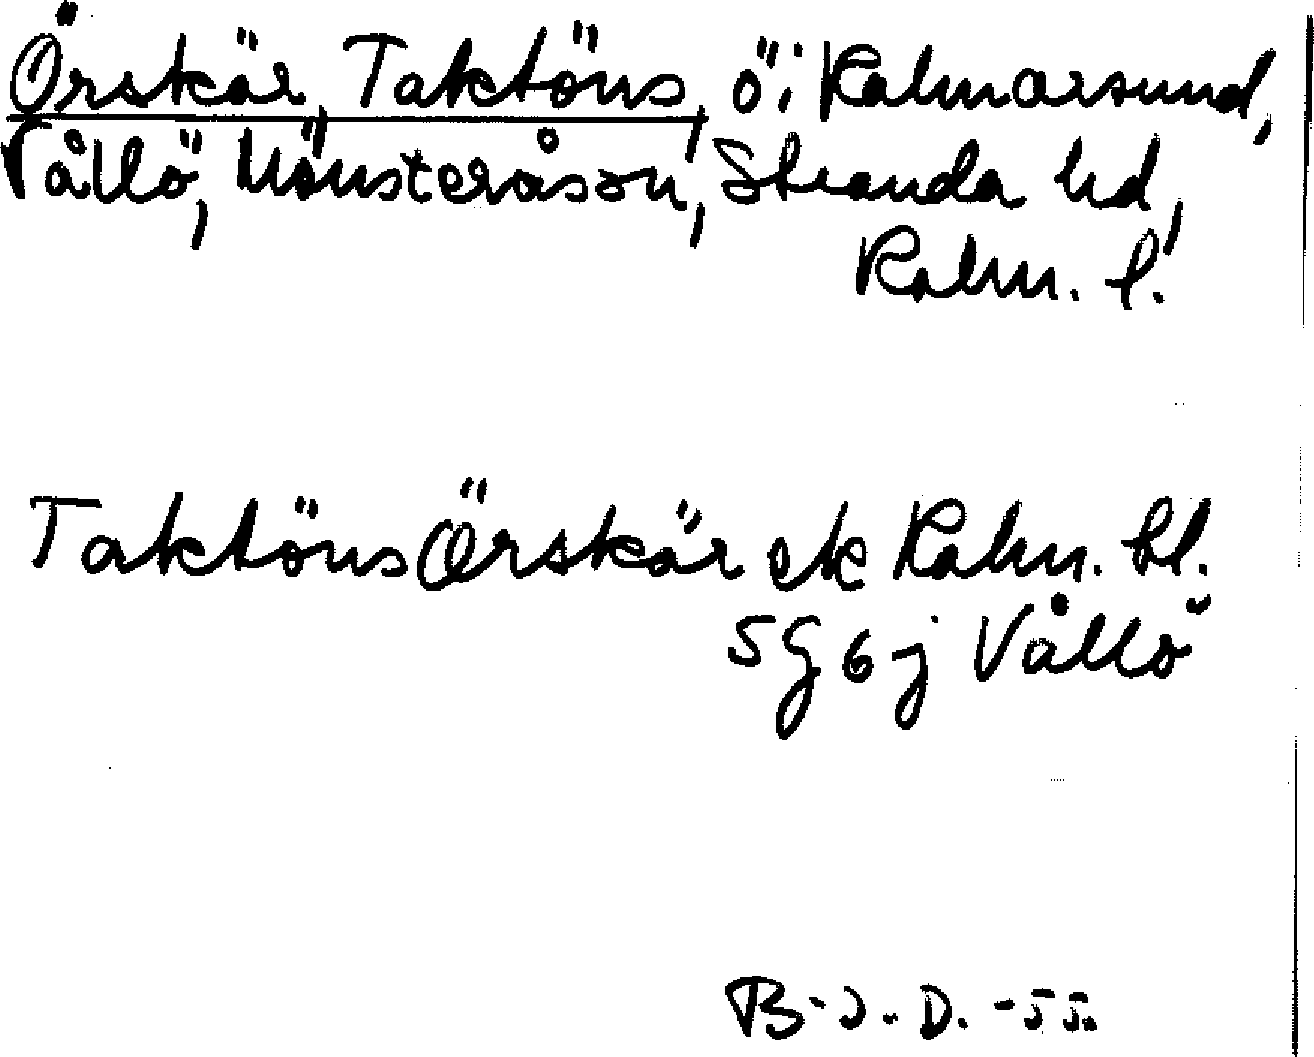 Örskär, Taktöns, ö i Kalmarsund,
Vållö, Mönsterås sn, Stranda hd,
Kalm. l.
Taktöns Örskär ek Kalm. bl.
5G6j Vållö
B-J. D. -55.